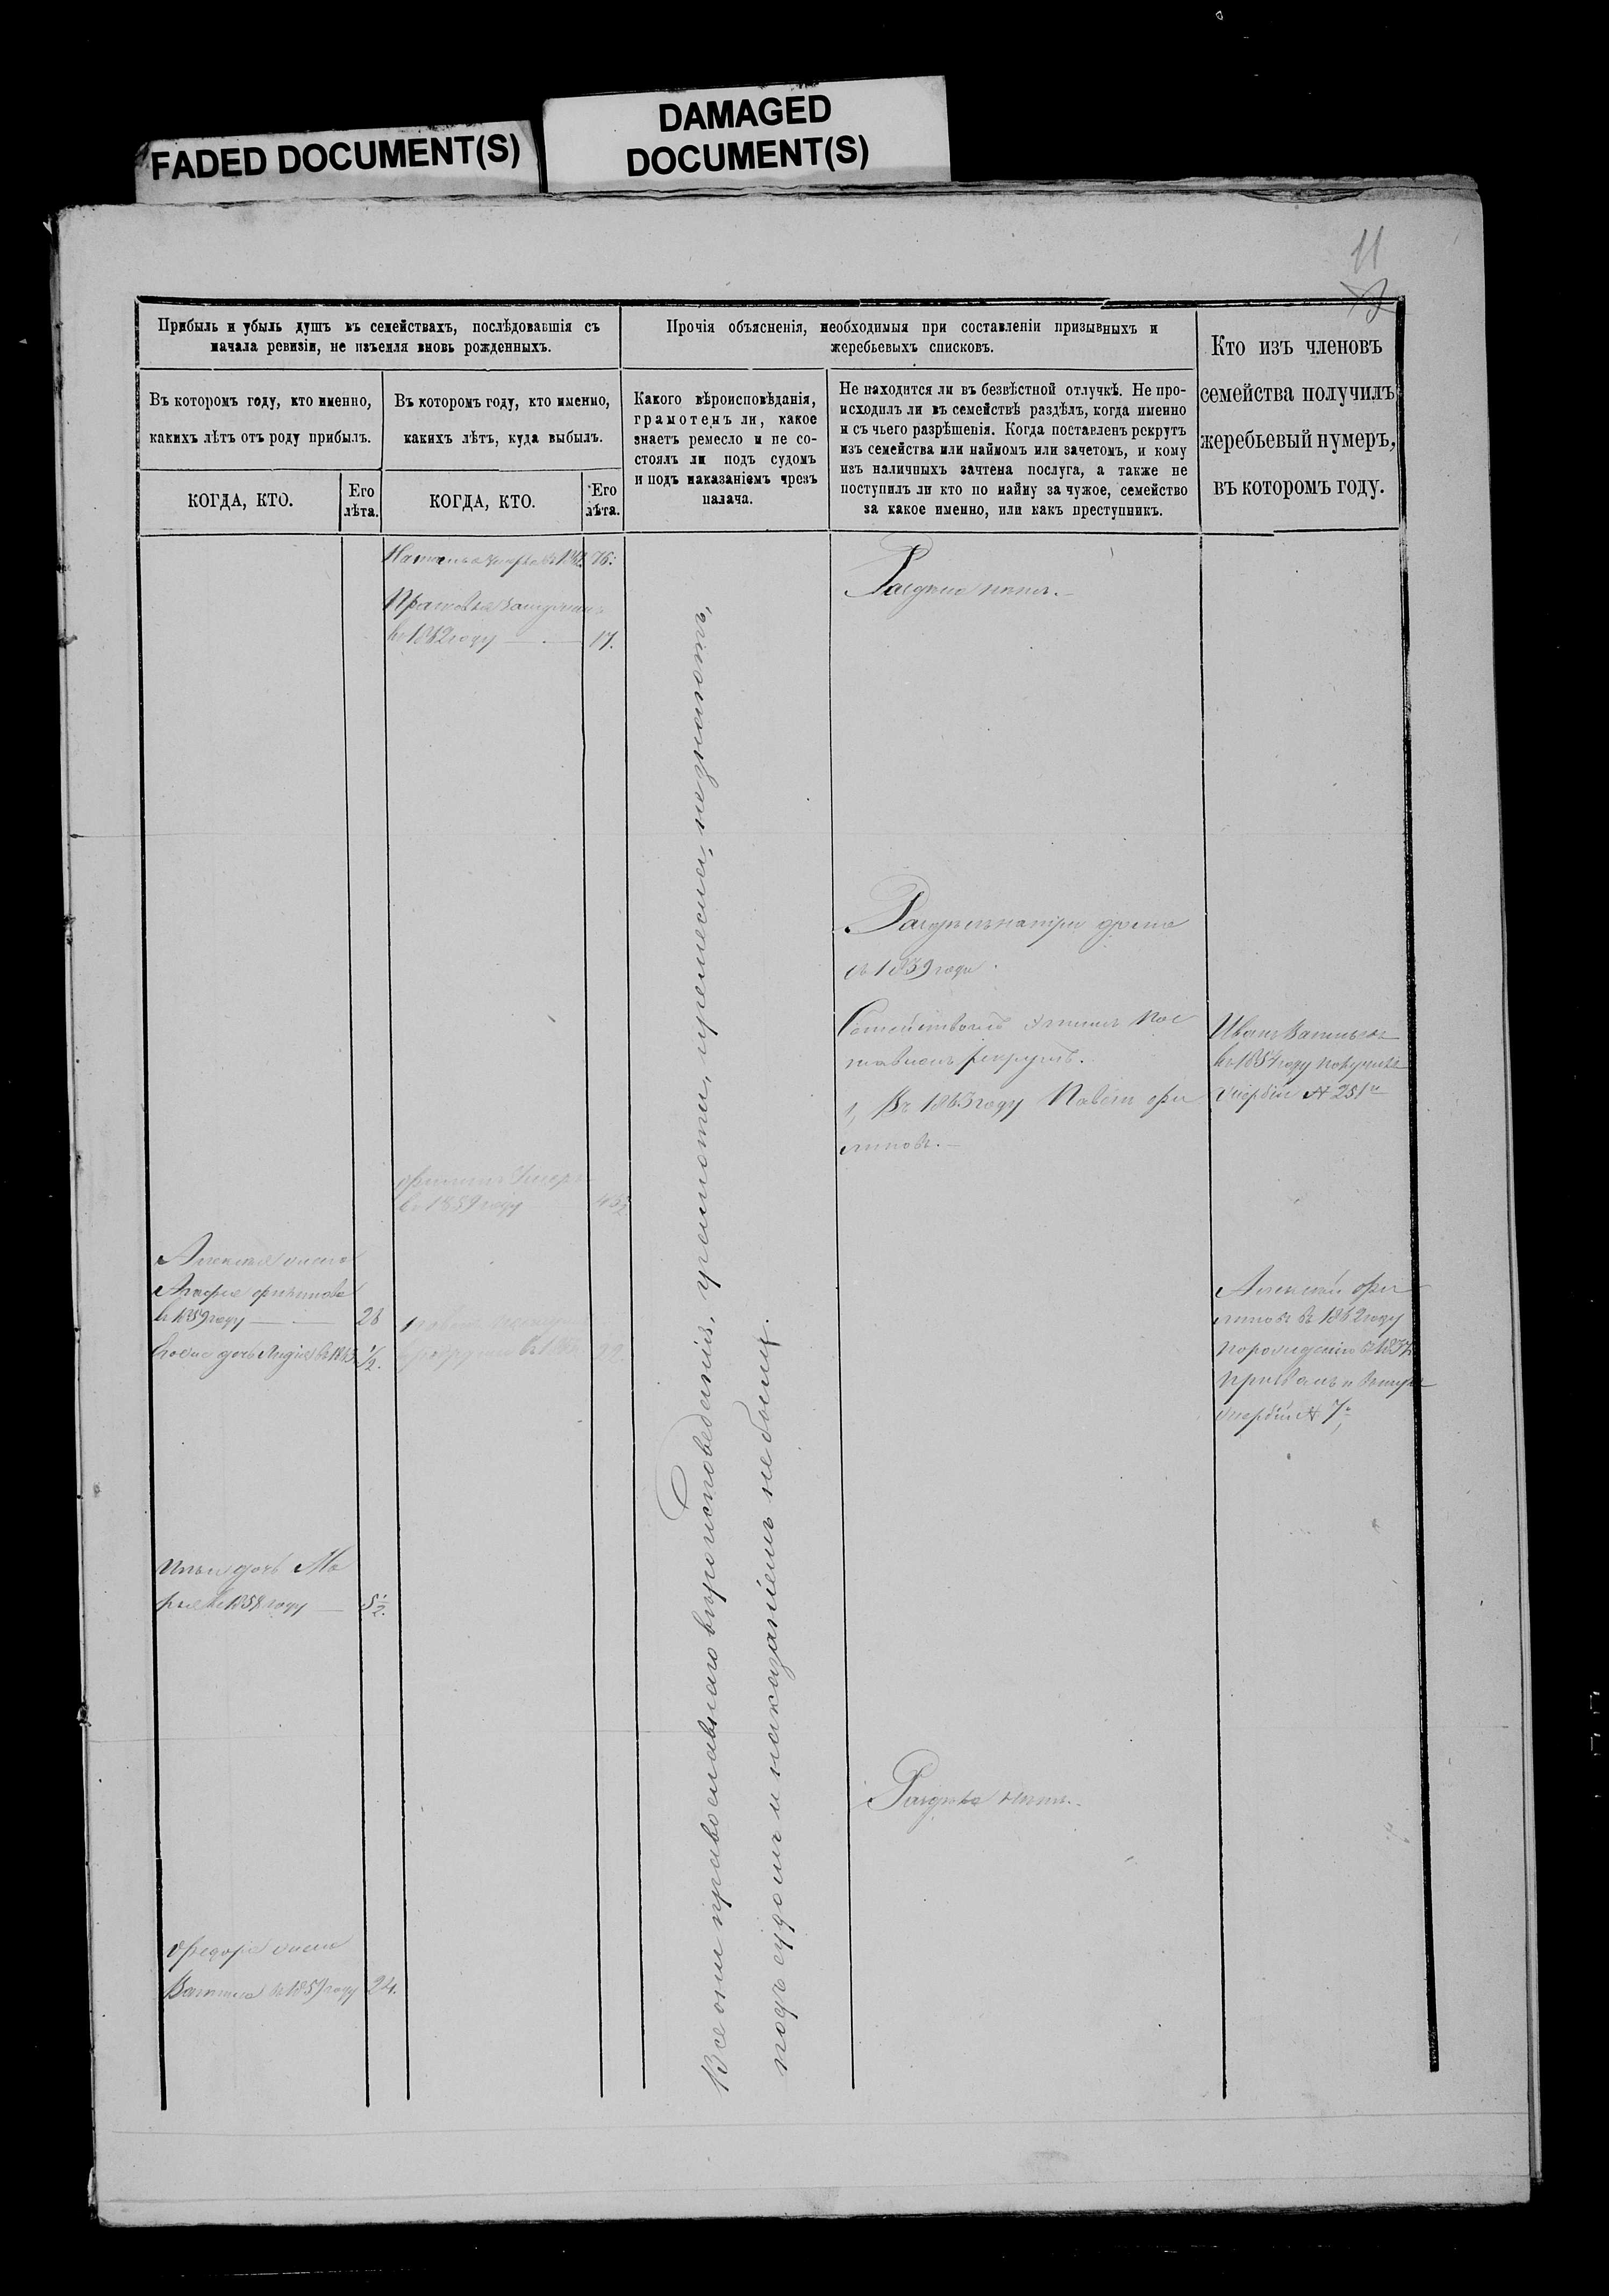 FADED DOCUMENT(S)
DAMAGED
DOCUMENT(S)
11
Прибыль и убыль душъ въ семействахъ, послѣдовавшія съ
начала ревизіи, не изъемля вновь рожденныхъ.
Въ которомъ году, кто именно,
какихъ лѣтъ отъ роду прибылъ.
Въ которомъ году, кто именно,
какихъ лѣтъ, куда выбылъ.
КОГДА, КТО.
Его
лѣта.
КОГДА, КТО.
Его
лѣта.
Прочія объясненія, необходимыя при составленіи призывныхъ и
жеребьевыхъ списковъ.
Какого вѣроисповѣданія,
грамотенъ ли, какое
знаетъ ремесло и не со-
стоялъ ли подъ судомъ
и подъ наказаніемъ чрезъ
палача.
Не находится ли въ безвѣстной отлучкѣ. Не про-
исходилъ ли въ семействѣ раздѣлъ, когда именно
и съ чьего разрѣшенія. Когда поставленъ рекрутъ
изъ семейства или наймомъ или зачетомъ, и кому
изъ наличныхъ зачтена послуга, а также не
поступилъ ли кто по найму за чужое, семейство
за какое именно, или какъ преступникъ.
Кто изъ членовъ
семейства получилъ
жеребьевый нумеръ,
въ которомъ году.
76.
въ 1862 году 17.
Раздѣла нѣтъ.
Раздѣлъ на три дома
съ 1859 года
Семействомъ этимъ пос
тавленъ рекрутъ.
1, Въ 1863 году Павелъ Фи
липовъ.
Иванъ Васильевъ
въ 1854 году получилъ
жеребій № 251й
Филипъ умеръ
въ 1859 году
Алексея жена
Агафья Филипова
въ 1859 году 28
дочь Лидія 1/2.
Павелъ
Алексѣй Фи
липовъ въ 1862 году
жеребій № 7й
Ильи дочь Ма
рья въ 1858 году 5 1/2.
Раздѣла нѣтъ.
Федора жена
въ 1859 году 24.
Все они православнаго вѣроисповеданія, грамоти, и ремесла, незнаютъ,
подъ судомъ и наказаніемъ не были.